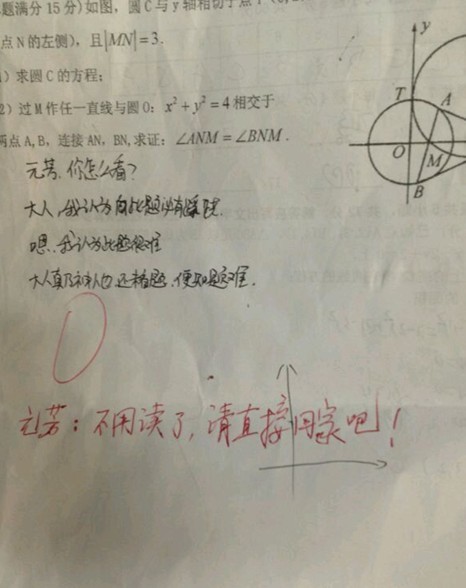 题满分15分)如图,圆C与y轴相切于点T(0,2
点N的左侧),且|MN|=3.
)求圆C的方程;
2)过M作任一直线与圆O:x²+y²=4相交于
两点A,B,连接AN,BN,求证:∠ANM=∠BNM.
y
T
A
O
M
B
元芳,你怎么看?
大人,我认为此题必有蹊跷.
嗯,我认为此题很难
大人真乃神人也,还看题,便知题难.
0
元芳:不用读了,请直接回家吧!